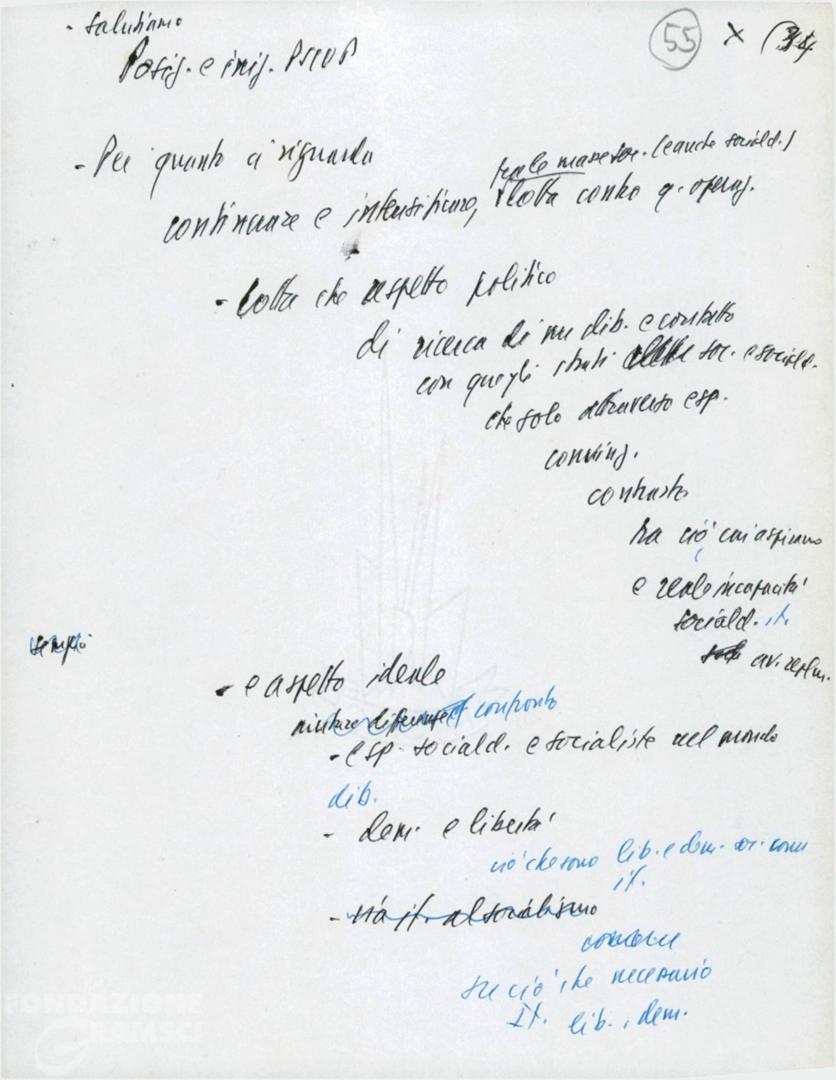 - salutiamo
55 x (34
Posiz. e iniz. PSIUP
- Per quanto ci riguarda
tra le masse soc. (e anche sociald.)
continuare e intensificare, lotta contro q. operaz.
- lotta che aspetto politico
di ricerca di un dib. e contatto
con quegli strati soc. e sociald.
che solo attraverso esp.
conving.
contrasto
tra ciò cui aspirano
e reale incapacità
sociald. it.
av.
- e aspetto ideale
confronto
- esp. sociald. e socialiste nel mondo
dib.
- dem. e libertà
ciò che sono lib. e dem. soc. com
it.
- via it. al socialismo
su ciò che necessario
It. lib. , dem.
FONDAZIONE
GRAMSCI